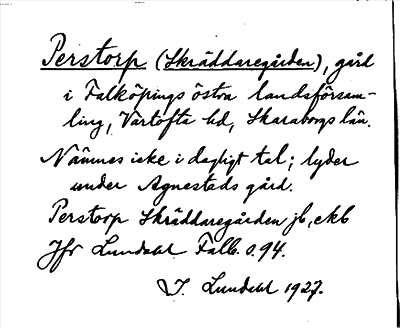 Perstorp (Skräddaregården), gård
i Falköpings östra landsförsam-
ling, Vartofta hd, Skaraborgs län.
Nämnes icke i dagligt tal; lyder
under Agnestads gård.
Perstorp Skräddaregården jb, ekb
Jfr Lundahl Falb. s. 94.
I. Lundahl 1927.